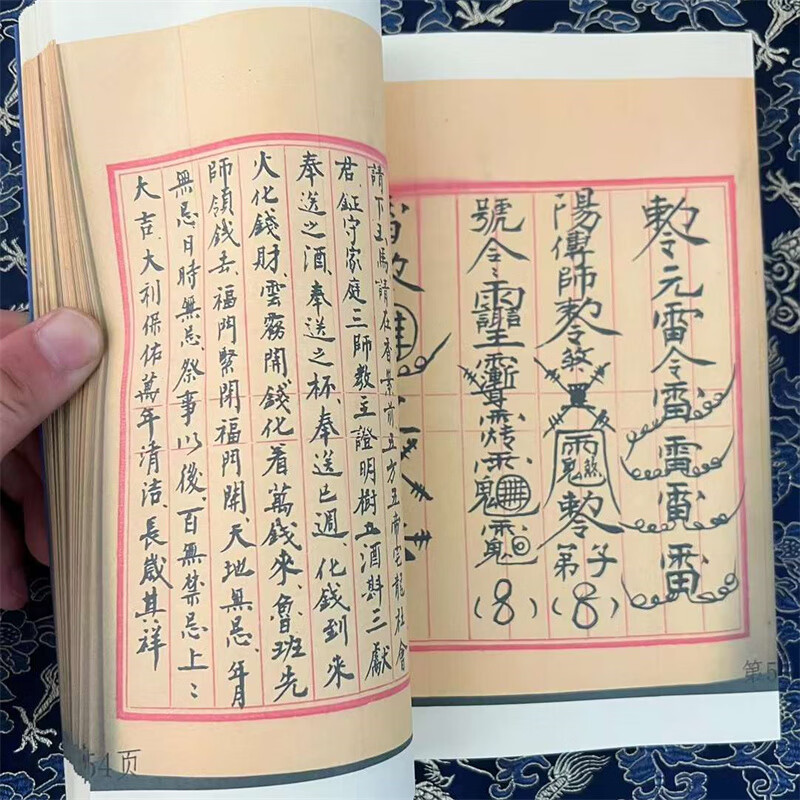 敕令元雷令雷雷雷雷
陽傳師敕令煞
敕令弟子(8)
號令
(8)
第5
請下五馬請在香案前五方五帝宅龍社會
君、鉦守家庭三師教主證明樹立酒斟三獻
奉送之酒、奉送之杯、奉送已週、化錢到來
火化錢財、雲霧開錢化着萬錢來、魯班先
師領錢去、福門緊閉福門開、天地無忌、年月
無忌日時無忌、祭事以後、百無禁忌上:
大吉、大利保佑萬年清洁、長歲其祥
54页